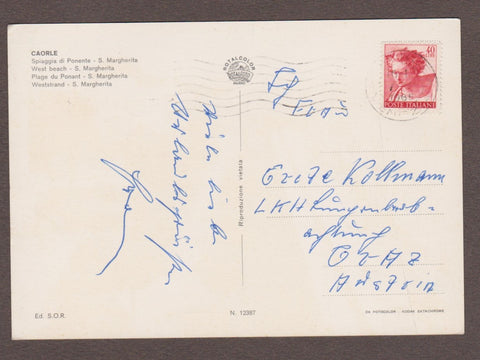 CAORLE
Spiaggia di Ponente - S. Margherita
West beach - S. Margherita
Plage du Ponant - S. Margherita
Weststrand - S. Margherita
ROTALCOLOR
40
POSTE ITALIANE
Viele liebe
Urlaubsgrüße
Frau
Grete Kollmann
LKH Lungenbeob-
achtung
GRAZ
Austria
Riproduzione vietata
Ed. S.O.R.
N. 12387
DA FOTOCOLOR - KODAK EKTACHROME